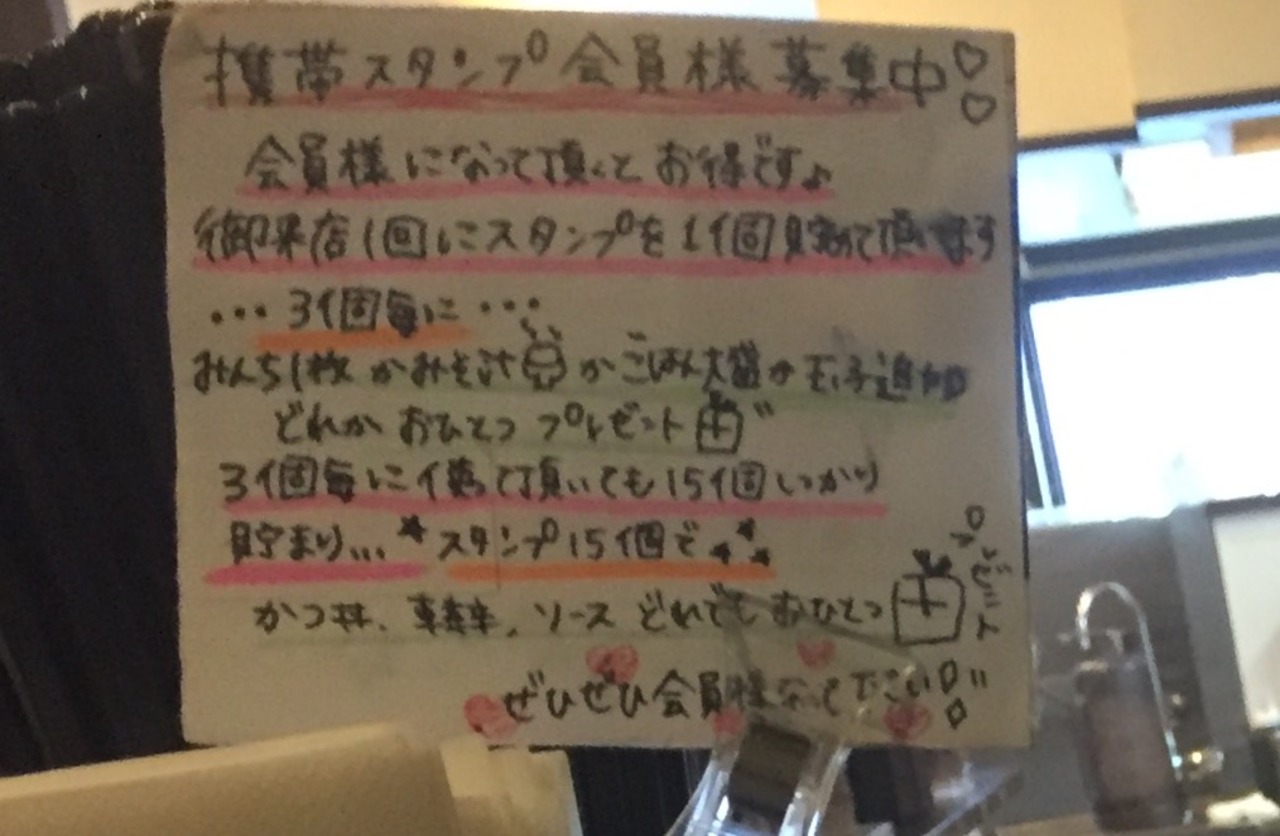 携帯スタンプ会員様募集中
会員様になって頂くとお得です♪
御来店1回にスタンプを1個貯めて頂けます
・・・3個毎に・・・
みんち1枚かみそ汁かごはん大盛か玉子追加
どれかおひとつプレゼント
3個毎に使って頂いても15個しっかり
貯まり...スタンプ15個で
かつ丼、ソースどれでもおひとつ
プレゼント
ぜひぜひ会員様なって下さい!!